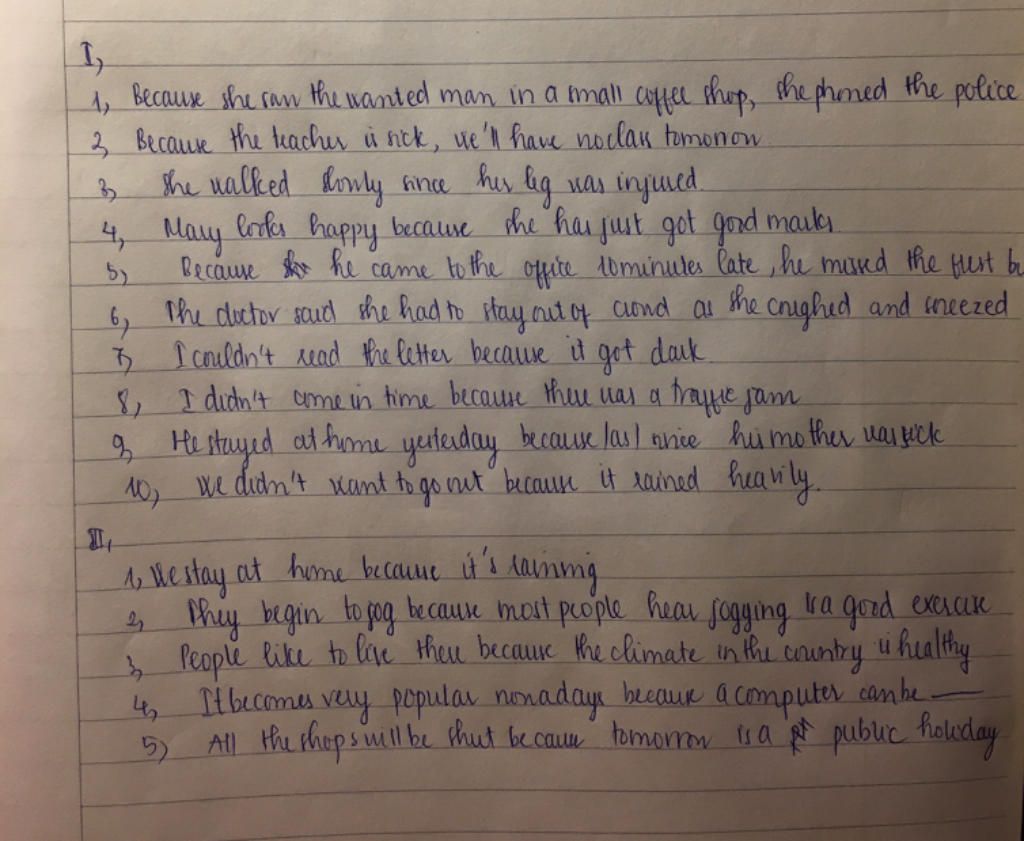 I,
1, Because she saw the wanted man in a small coffee shop, she phoned the police
2, Because the teacher is sick, we'll have no class tomorrow
3, She walked slowly since her leg was injured.
4, Mary looks happy because she has just got good marks
5, Because he came to the office 10 minutes late, he missed the first bu
6, The doctor said she had to stay out of crowd as she coughed and sneezed
7, I couldn't read the letter because it got dark.
8, I didn't come in time because there was a traffic jam
9, He stayed at home yesterday because /as/ since his mother was sick
10, We didn't want to go out because it rained heavily.
II,
1, We stay at home because it's raining
2, They begin to jog because most people hear jogging is a good exercise
3, People like to live there because the climate in the country is healthy
4, It becomes very popular nowadays because a computer can be —
5) All the shops will be shut because tomorrow is a public holiday